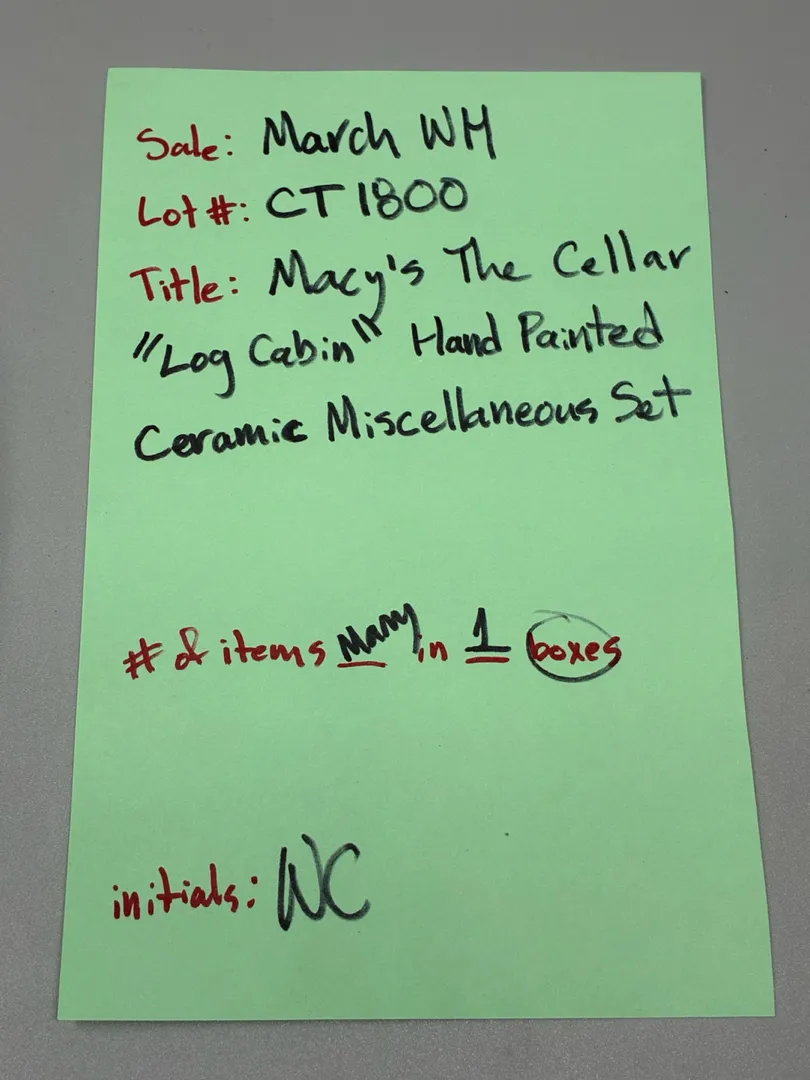 Sale: March WH
Lot #: CT 1800
Title: Macy's The Cellar
"Log Cabin" Hand Painted
Ceramic Miscellaneous Set
# of items Many in 1 boxes
initials: WC